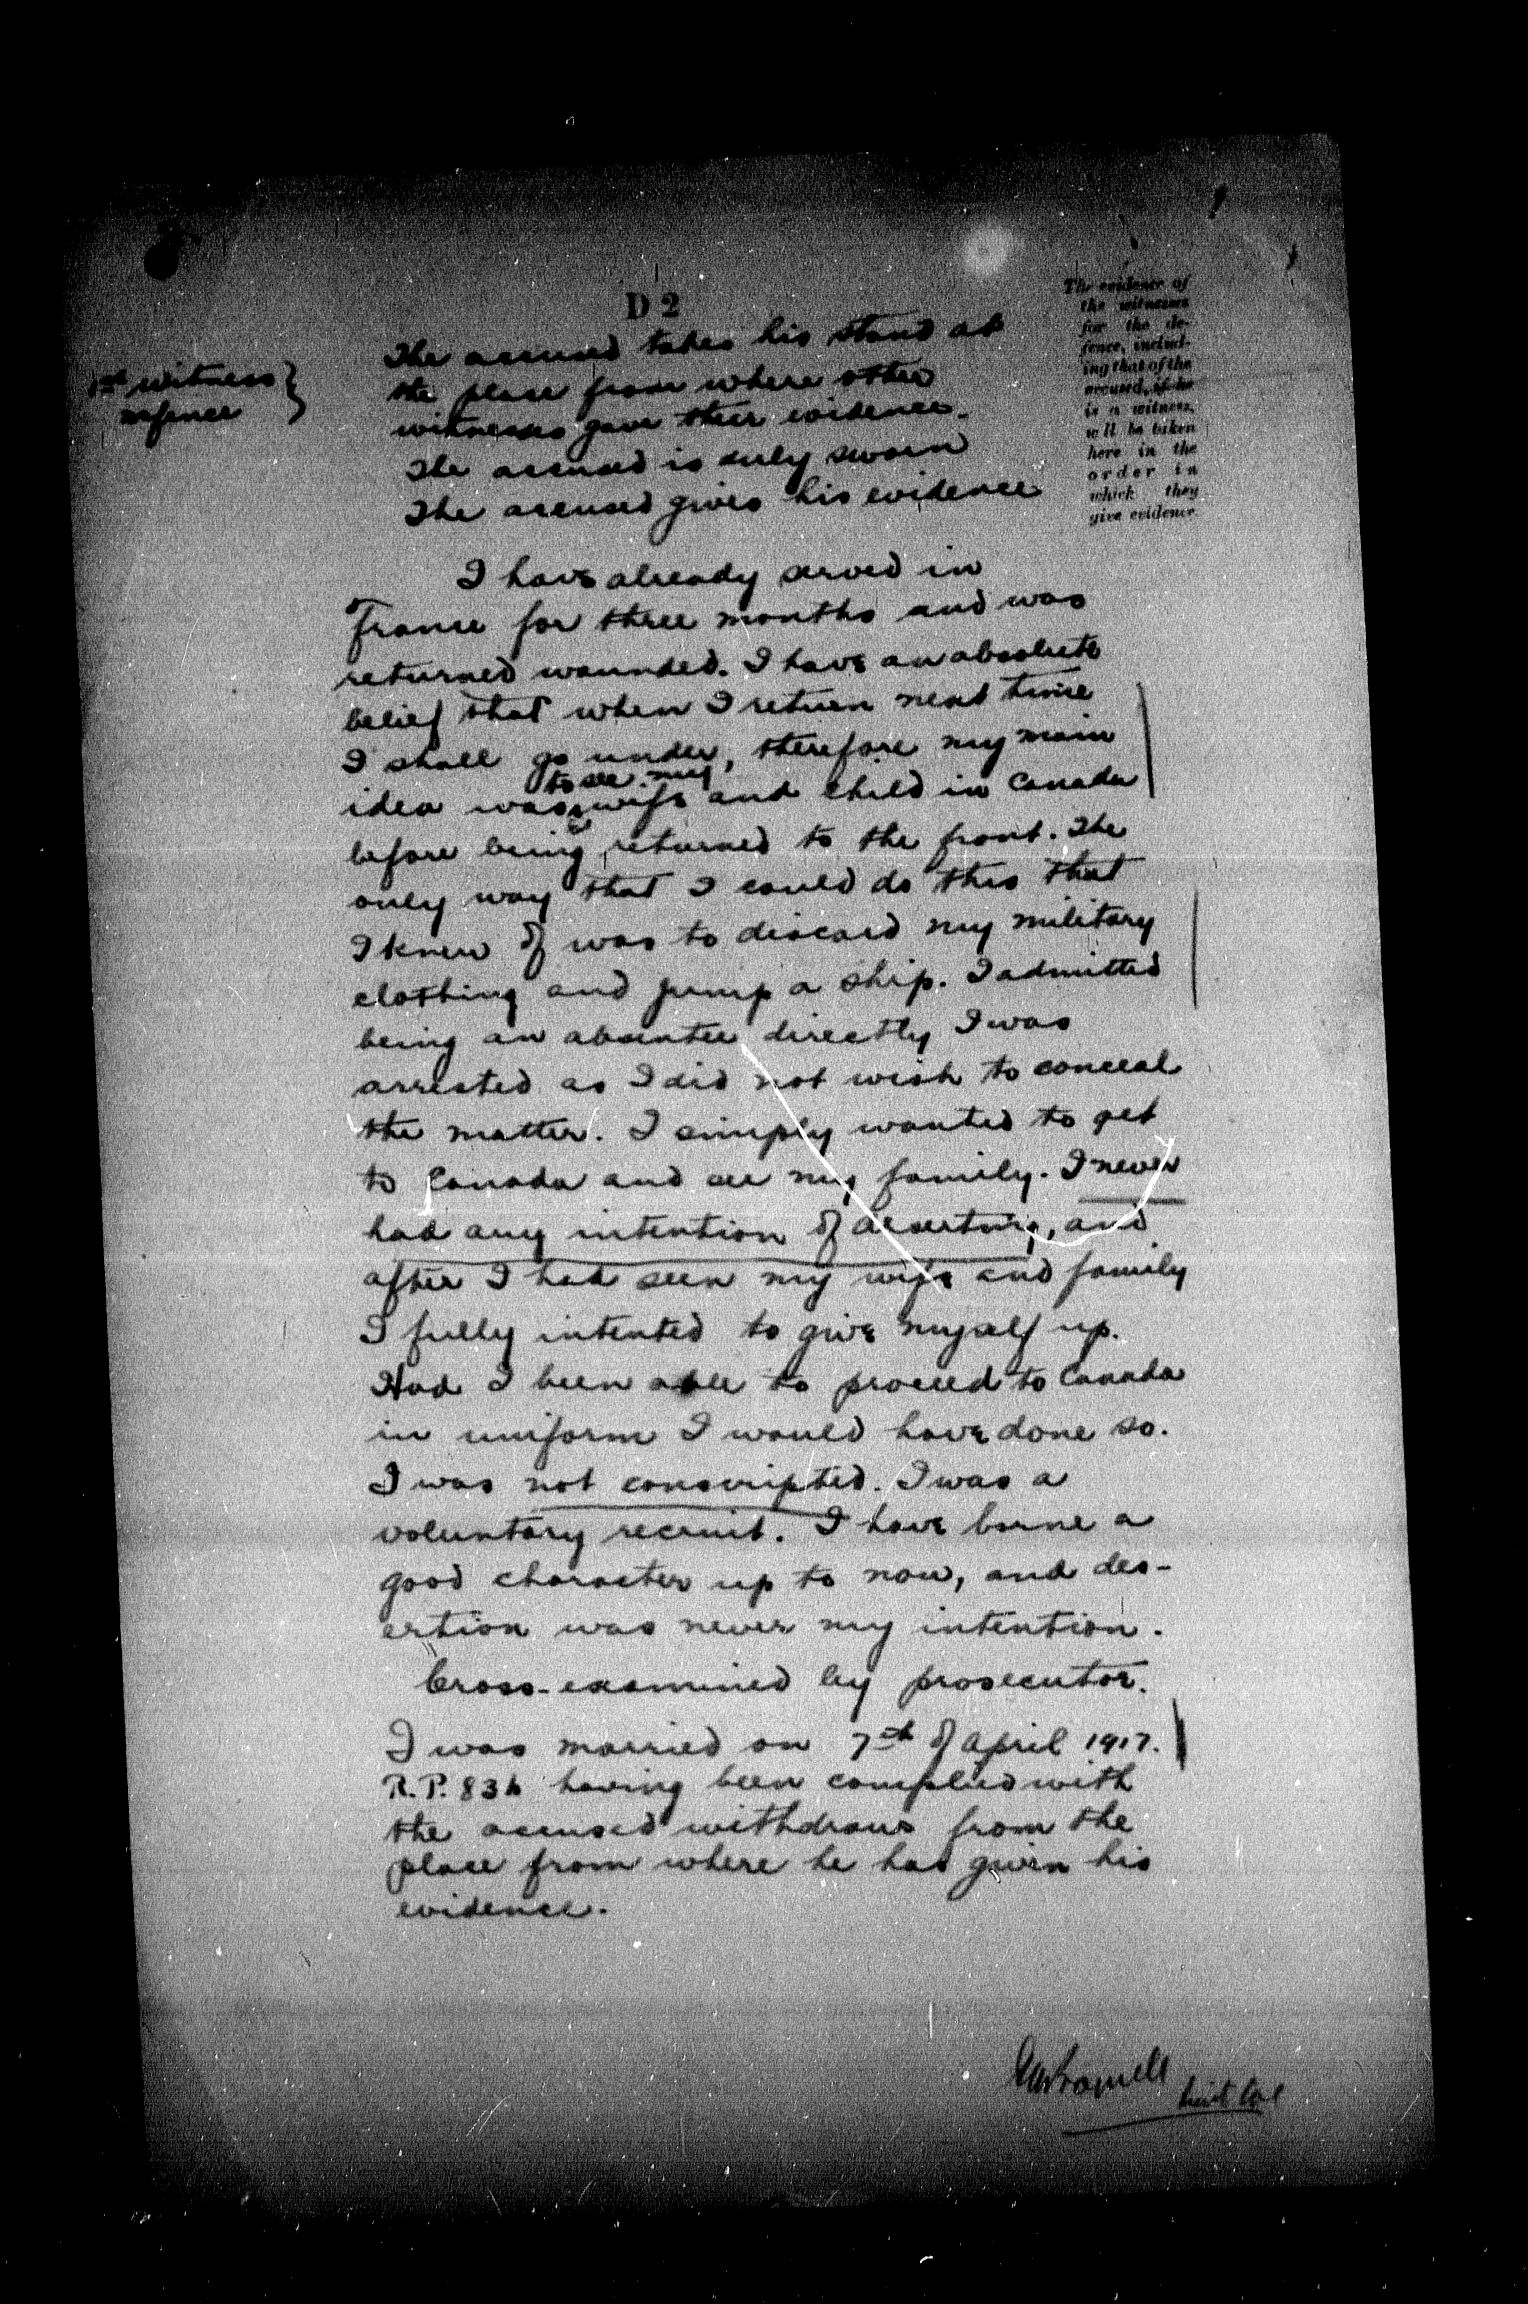 D 2
The evidence of
the witnesses
for the de-
fence, includ-
ing that of the
accused, if he
is a witness,
will be taken
here in the
order in
which they
give evidence.
1st witness
defence
The accused takes his stand at
the place from where other
witnesses gave their evidence.
The accused is duly sworn
The accused gives his evidence
I have already served in
France for three months and was
returned wounded. I have an absolute
belief that when I return next time
I shall go under, therefore my main
idea was to see my wife and child in Canada
before being returned to the front. The
only way that I could do this that
I knew of was to discard my military
clothing and jump a ship. I admitted
being an absentee directly I was
arrested as I did not wish to conceal
the matter. I simply wanted to get
to Canada and see my family. I never
had any intention of deserting, and
after I had seen my wife and family
I fully intented to give myself up.
Had I been able to proceed to Canada
in uniform I would have done so.
I was not conscripted. I was a
voluntary recruit. I have borne a
good character up to now, and des-
ertion was never my intention.
Cross-examined by prosecutor.
I was married on 7th of April 1917.
R.P. 83b having been complied with
the accused withdraws from the
place from where he has given his
evidence.
Lieut Col